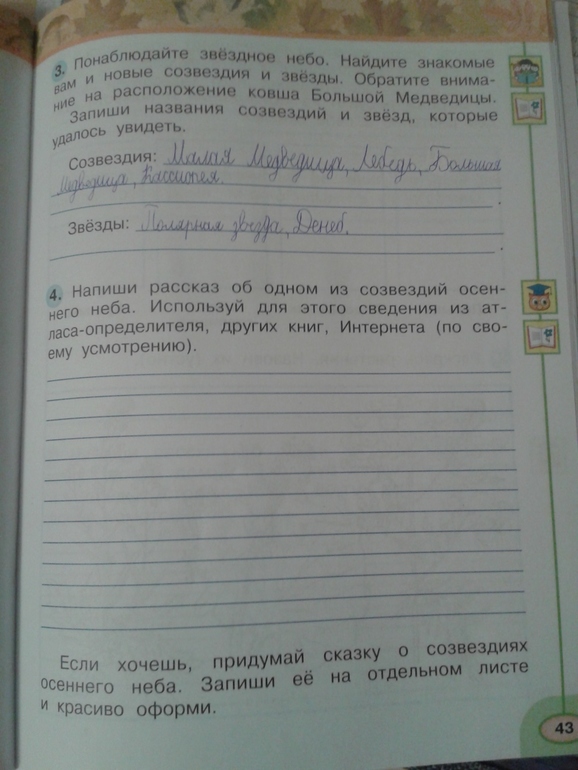 3. Понаблюдайте звёздное небо. Найдите знакомые
вам и новые созвездия и звёзды. Обратите внима-
ние на расположение ковша Большой Медведицы.
Запиши названия созвездий и звёзд, которые
удалось увидеть.
Созвездия: Малая Медведица, Лебедь, Большая
Медведица, Кассиопея.
.
Звёзды: Полярная звезда, Денеб.
.
4. Напиши рассказ об одном из созвездий осен-
него неба. Используй для этого сведения из ат-
ласа-определителя, других книг, Интернета (по сво-
ему усмотрению).
Если хочешь, придумай сказку о созвездиях
осеннего неба. Запиши её на отдельном листе
и красиво оформи.
43